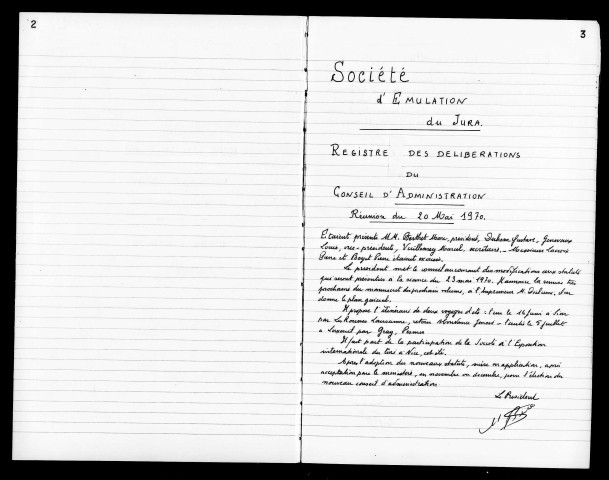 2
3
Société
d'EMULATION
du JURA.
REGISTRE DES DELIBERATIONS
DU
CONSEIL D'ADMINISTRATION
Réunion du 20 Mai 1970.
Etaient présents M.M. Berthet Marc, président, Dubson Gustave,
Louis, vice-présidents, Vuillemey Marcel, secrétaire. - Messieurs Lacroix
et Boyet Pierre étaient excusés.
Le président met le conseil au courant des modifications aux statuts
qui seront présentées à la séance du 23 mai 1970. Il annonce la remise très
prochaine du manuscrit du prochain volume, à l'imprimeur M. . Il en
donne le plan général.
Il propose l'itinéraire de deux voyages d'été : l'un le 14 juin à Sion
par Lausanne, retour - l'autre le 5 juillet
à Luxeuil par Gray,
Il fait part de la participation de la Société à l'Exposition
internationale du à Nice, cet été.
Après l'adoption des nouveaux statuts, mise en application, après
acceptation par le ministère, en novembre ou décembre, pour l'élection du
nouveau conseil d'administration
Le Président